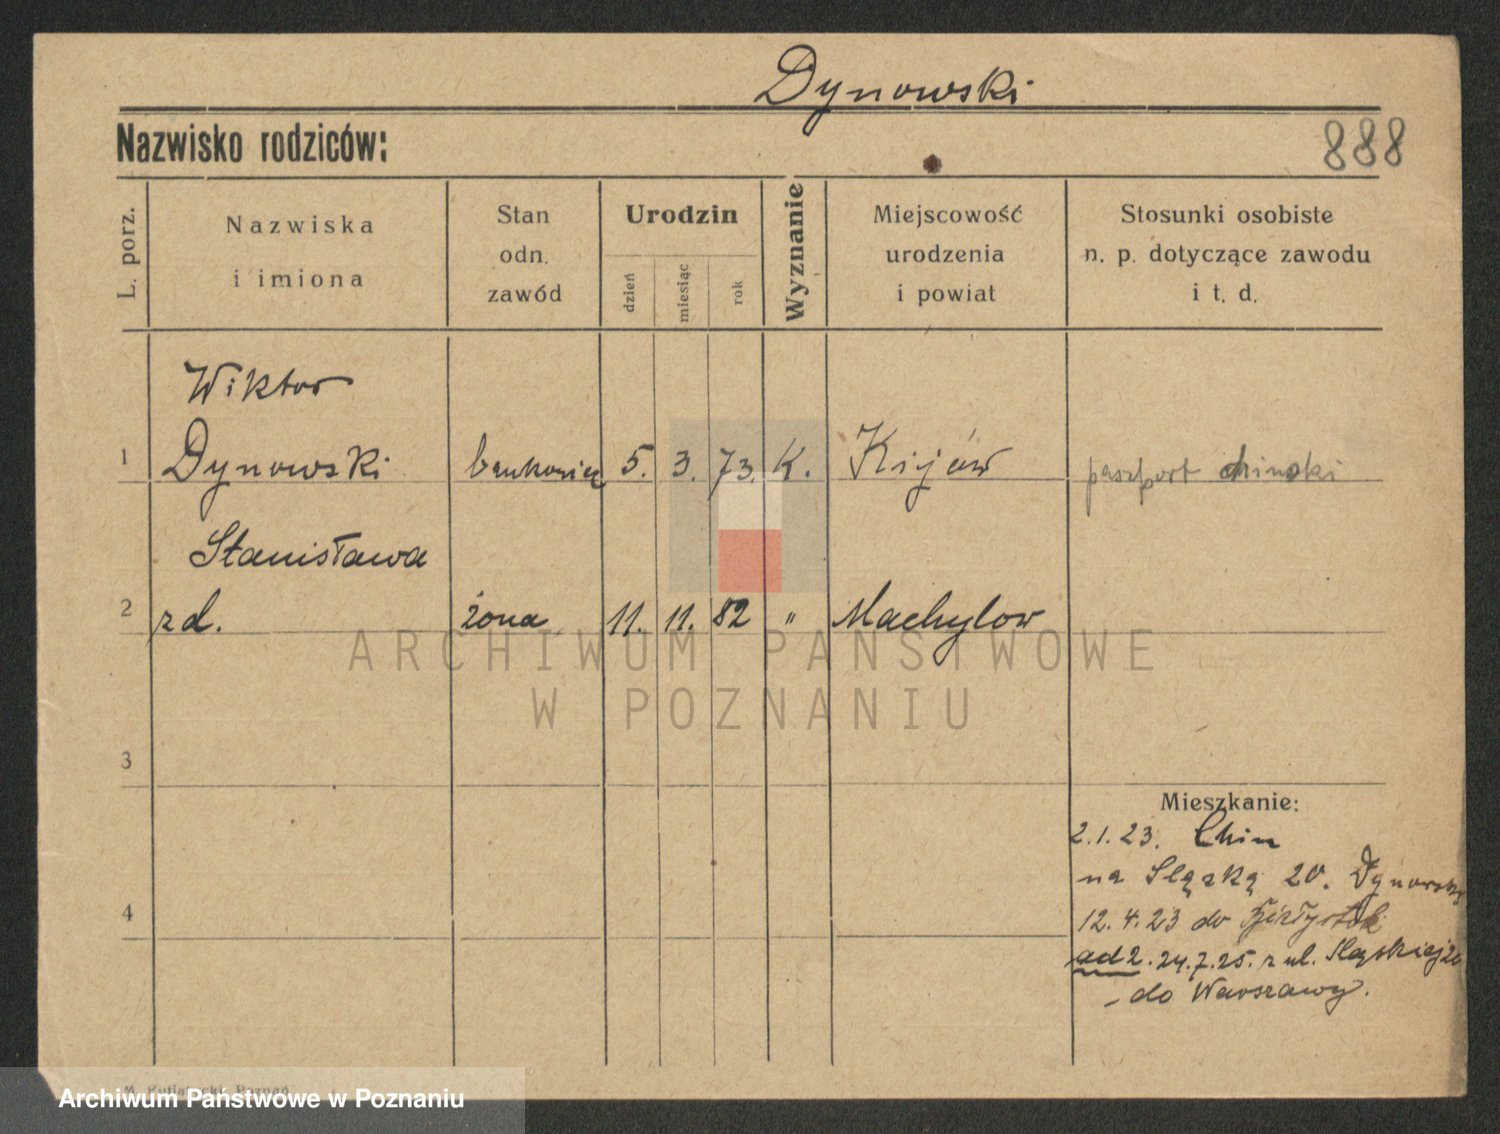 Dynowski
Nazwisko rodziców:
888
L. porz.
Nazwiska
i imiona
Stan
odn.
zawód
Urodzin
dzień
miesiąc
rok
Wyznanie
Miejscowość
urodzenia
i powiat
Stosunki osobiste
n. p. dotyczące zawodu
i t. d.
Wiktor
1 Dynowski bankowiec 5. 3. 73. K. Kijów paszport chinski
Stanisława
2 zd. żona 11. 11. 82 " Machylow
ARCHIWUM PAŃSTWOWE
W POZNANIU
3
Mieszkanie:
2.1.23. Chin
na Sląską 20. Dynowski
4
12.4.23 do
ad 2. 24.7.25. z ul. Sląskiej 20
- do Warszawy.
M. Putiatycki, Poznań
Archiwum Państwowe w Poznaniu